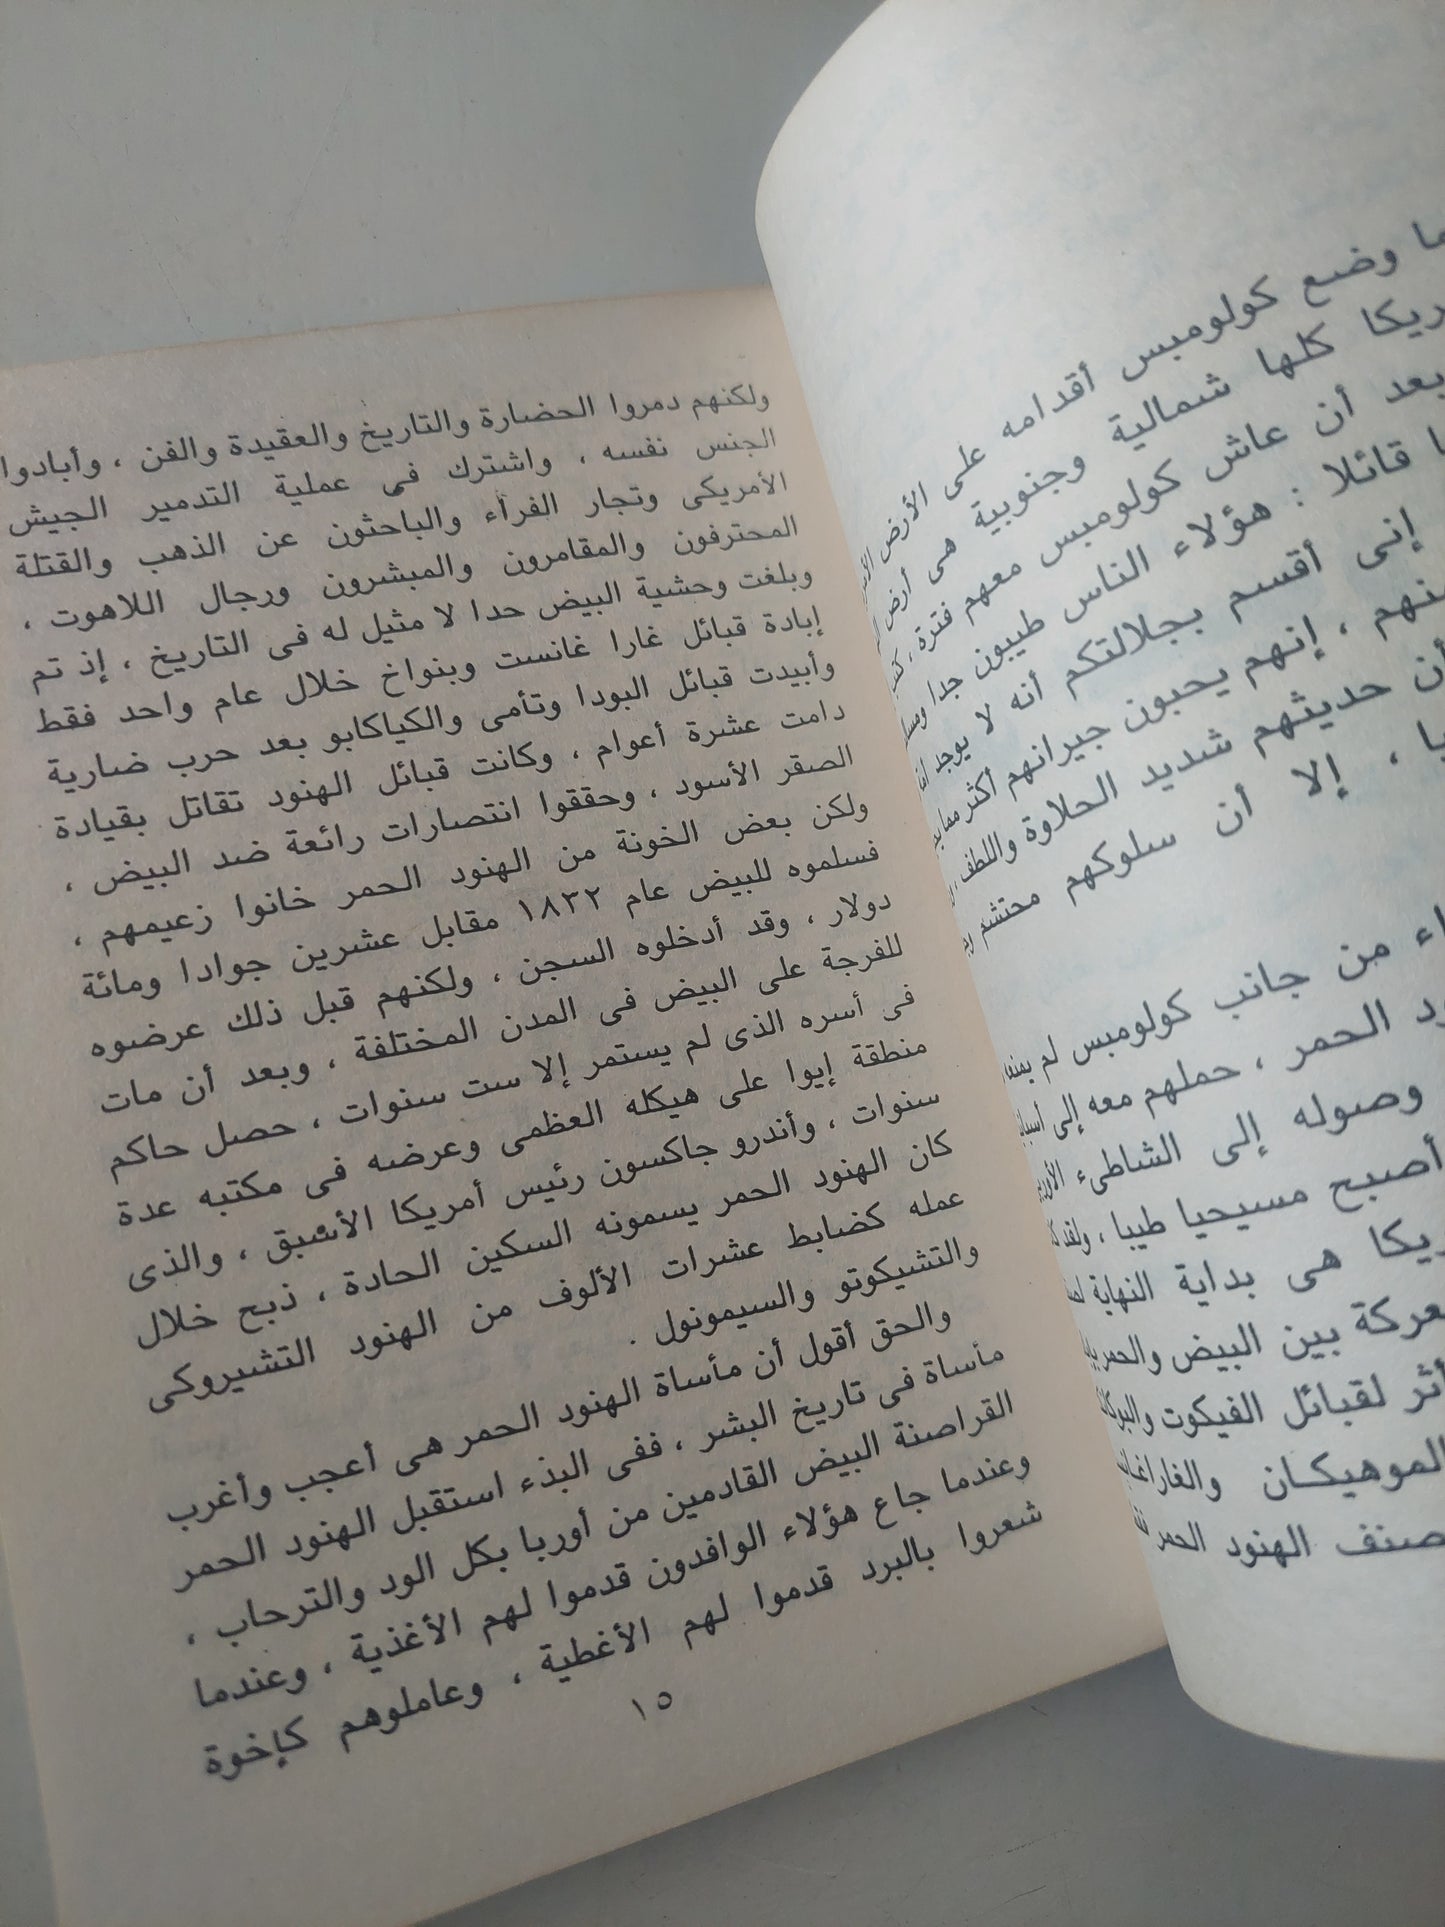 ما وضع كولومبس أقدامه على الأرض
ريكا كلها شمالية وجنوبية هى أرض
بعد أن عاش كولومبس معهم فترة ،
ا قائلا : هؤلاء الناس طيبون جدا
إنى أقسم بجلالتكم أنه لا يوجد
نهم ، إنهم يحبون جيرانهم أكثر مما
أن حديثهم شديد الحلاوة واللطف
يا ، إلا أن سلوكهم محتشم
اء من جانب كولومبس لم
ود الحمر ، حملهم معه إلى
وصوله إلى الشاطىء
أصبح مسيحيا طيبا ، ولقد
ريكا هى بداية النهاية
عركة بين البيض والحمر
أثر لقبائل الفيكوت
الموهيكان
صنف الهنود الحمر
ولكنهم دمروا الحضارة والتاريخ والعقيدة والفن ، وأبادوا
الجنس نفسه ، واشترك فى عملية التدمير الجيش
الأمريكى وتجار الفرآء والباحثون عن الذهب والقتلة
المحترفون والمقامرون والمبشرون ورجال اللاهوت ،
وبلغت وحشية البيض حدا لا مثيل له فى التاريخ ، إذ تم
إبادة قبائل غارا غانست وبنواخ خلال عام واحد فقط
وأبيدت قبائل البودا وتأمى والكياكابو بعد حرب ضارية
دامت عشرة أعوام ، وكانت قبائل الهنود تقاتل بقيادة
الصقر الأسود ، وحققوا انتصارات رائعة ضد البيض ،
ولكن بعض الخونة من الهنود الحمر خانوا زعيمهم ،
فسلموه للبيض عام ١٨٣٢ مقابل عشرين جوادا ومائة
دولار ، وقد أدخلوه السجن ، ولكنهم قبل ذلك عرضوه
للفرجة على البيض فى المدن المختلفة ، وبعد أن مات
فى أسره الذى لم يستمر إلا ست سنوات ، حصل حاكم
منطقة إيوا على هيكله العظمى وعرضه فى مكتبه عدة
سنوات ، وأندرو جاكسون رئيس أمريكا الأسبق ، والذى
كان الهنود الحمر يسمونه السكين الحادة ، ذبح خلال
عمله كضابط عشرات الألوف من الهنود التشيروكى
والتشيكوتو والسيمونول .
والحق أقول أن مأساة الهنود الحمر هى أعجب وأغرب
مأساة فى تاريخ البشر ، ففى البذء استقبل الهنود الحمر
القراصنة البيض القادمين من أوربا بكل الود والترحاب ،
وعندما جاع هؤلاء الوافدون قدموا لهم الأغذية ، وعندما
شعروا بالبرد قدموا لهم الأغطية ، وعاملوهم كإخوة
١٥